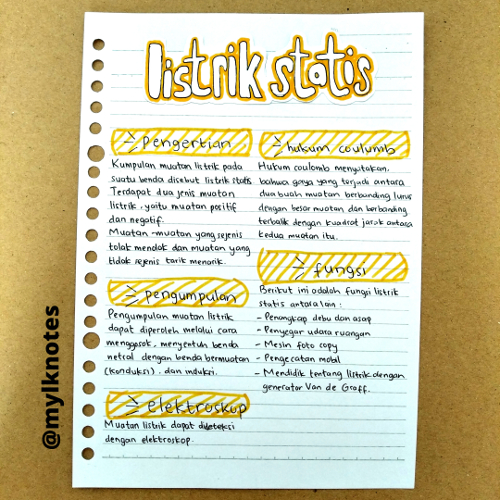 listrik statis
pengertian
Kumpulan muatan listrik pada
suatu benda disebut listrik statis
Terdapat dua jenis muatan
listrik, yaitu muatan positif
dan negatif.
Muatan-muatan yang sejenis
tolak menolak dan muatan yang
tidak sejenis tarik menarik.
pengumpulan
Pengumpulan muatan listrik
dapat diperoleh melalui cara
menggosok, menyentuh benda
netral dengan benda bermuatan
(konduksi), dan induksi.
elektroskop
Muatan listrik dapat dideteksi
dengan elektroskop.
hukum coulumb
Hukum coulomb menyatakan,
bahwa gaya yang terjadi antara
dua buah muatan berbanding lurus
dengan besar muatan dan berbanding
terbalik dengan kuadrat jarak antara
kedua muatan itu.
fungsi
Berikut ini adalah fungsi listrik
statis antara lain:
- Penangkap debu dan asap
- Penyegar udara ruangan
- Mesin foto copy
- Pengecatan mobil
- Mendidik tentang listrik dengan
generator Van de Graff.
@mylknotes